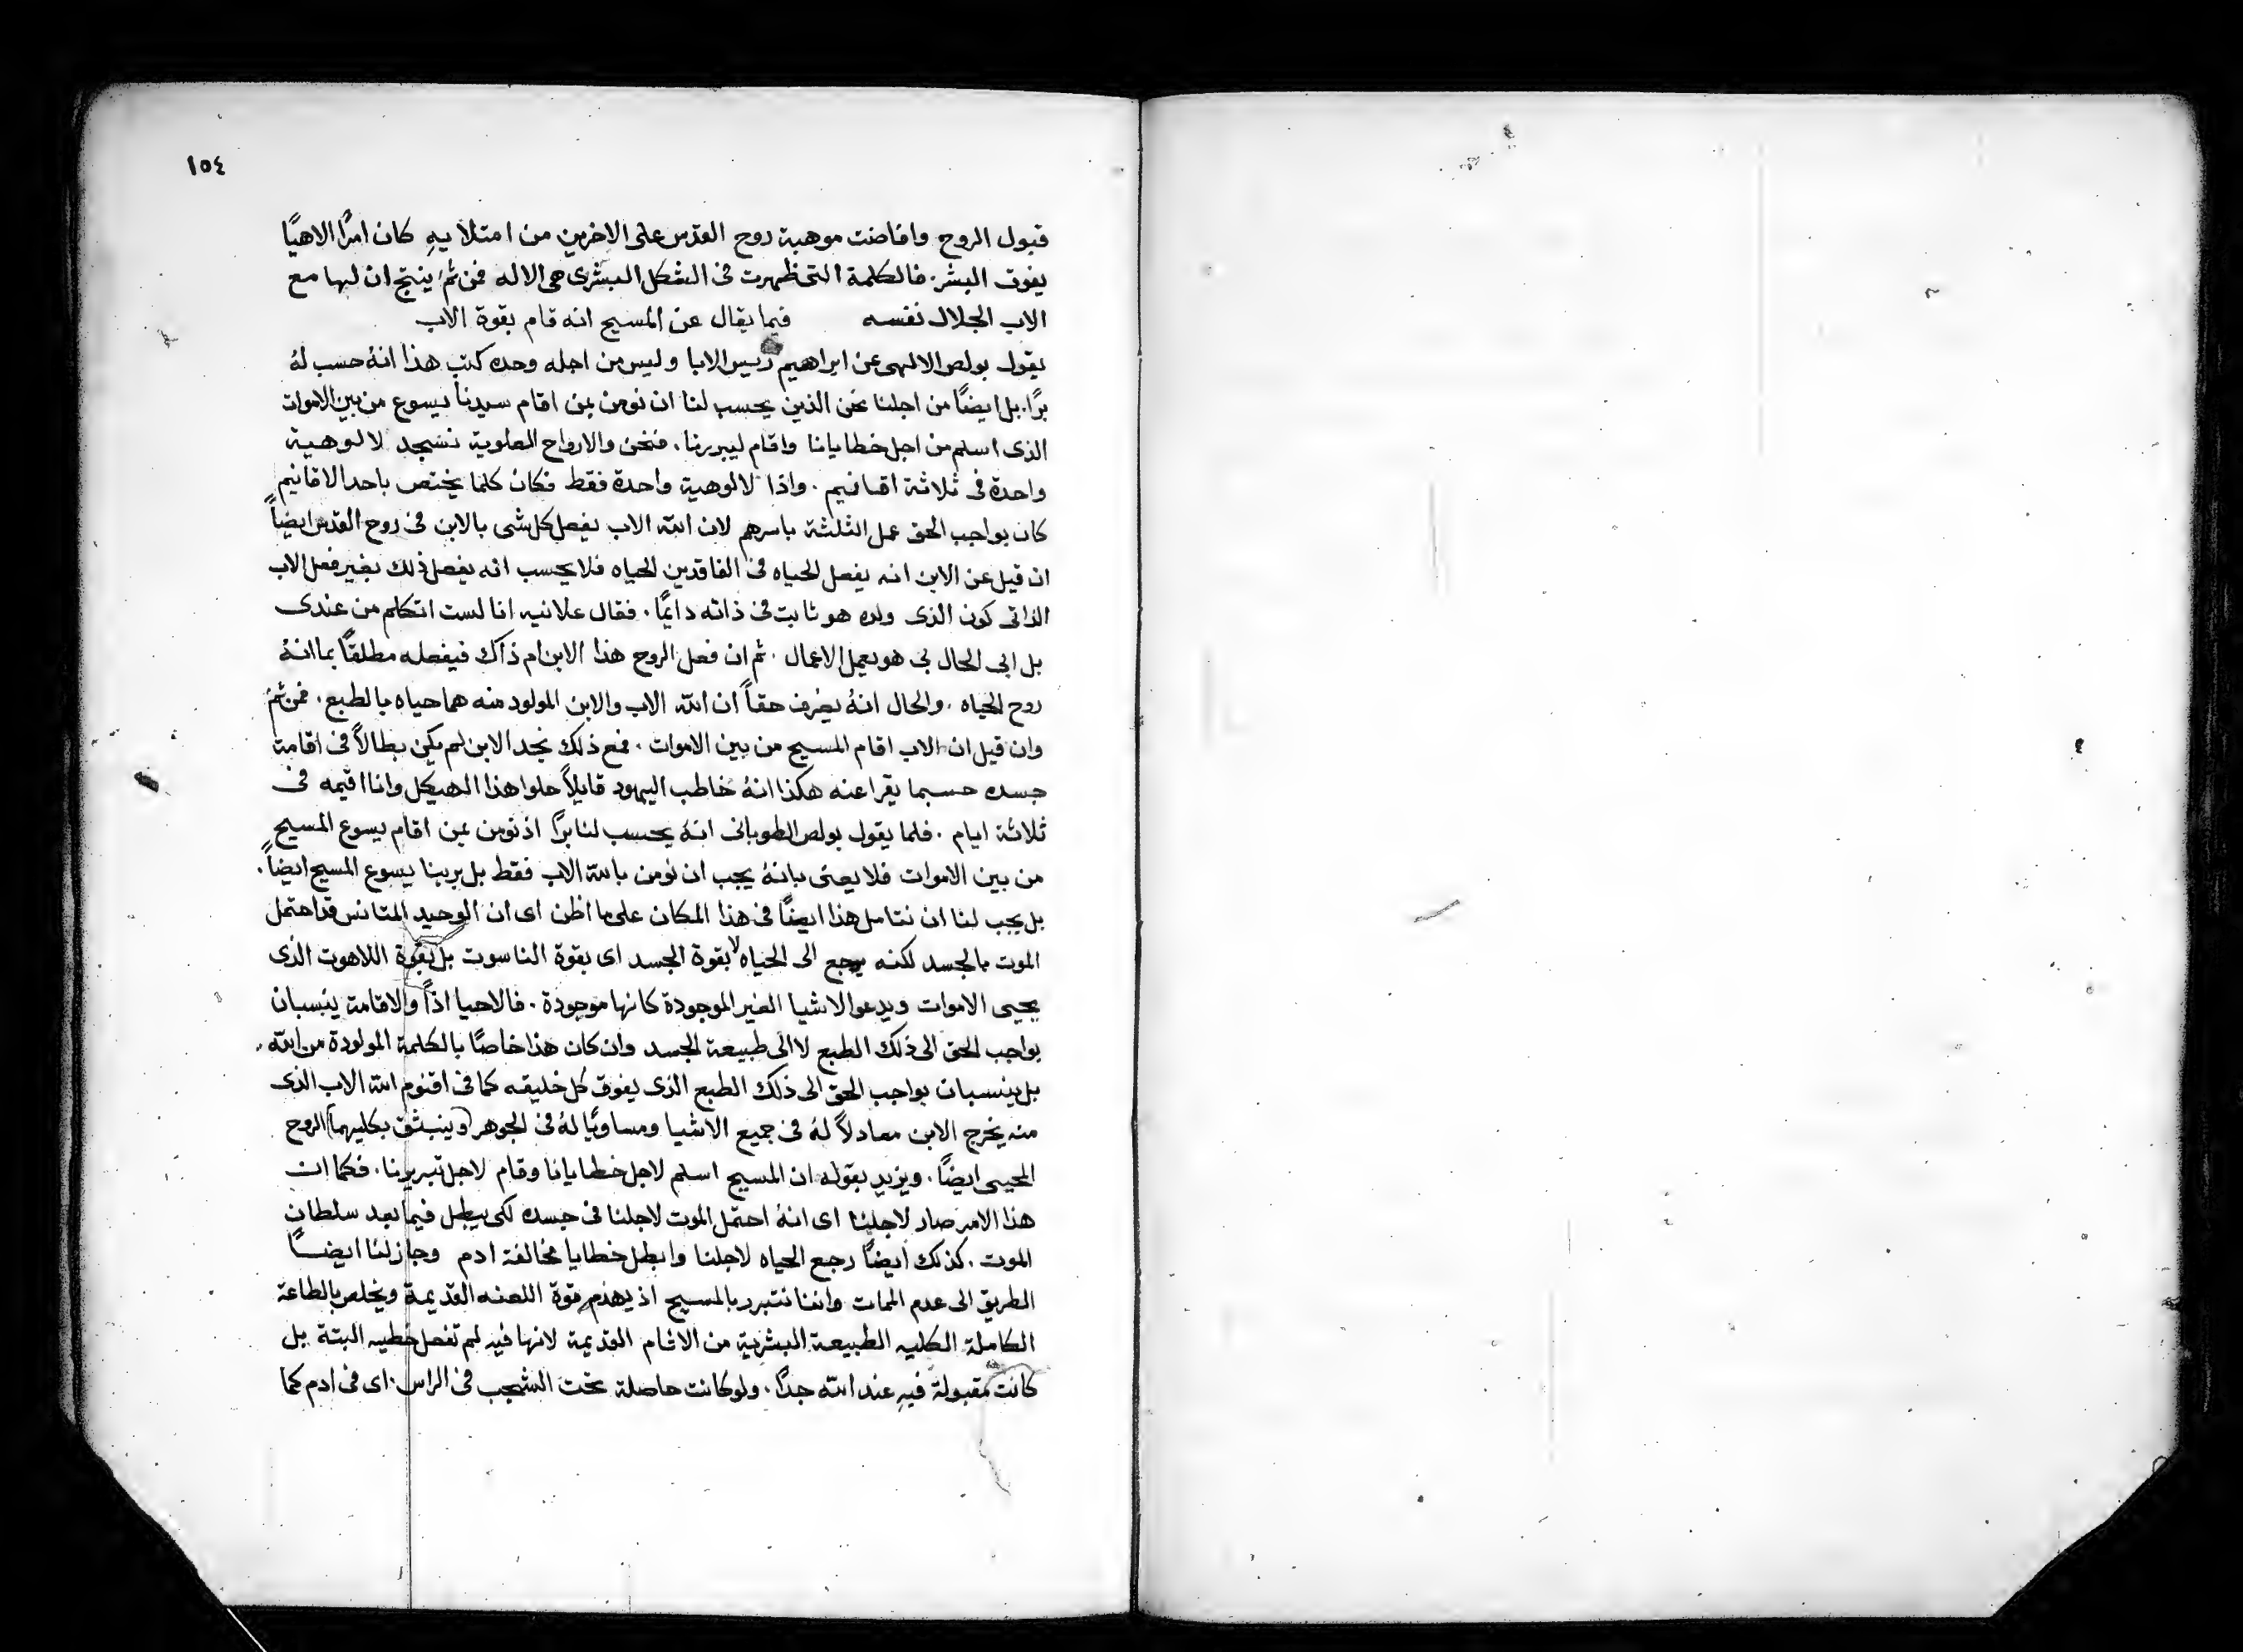 ١٥٤
قبول الروح وافاضت موهبة روح القدس على الاخرين من امتلا يهِ كان امرًا الاهيًا
يفوق البشر. فالكلمة التى ظهرت فى الشكل البشرى هى الاله فمن ثمَّ ينتج ان لها مع
الاب الجلال نفسه فيما يقال عن المسيح انه قام بقوة الاب
يقول بولص الالهى عن ابراهيم ريس الابا وليس من اجله وحده كتب هذا انهُ حسب لهُ
برًا. بل ايضًا من اجلنا نحن الذين يحسب لنا ان نومن بمن اقام سيدنا يسوع من بين الاموات
الذى اسلم من اجل خطايانا واقام ليبررنا. فنحن والارواح العلوية نسجد لالوهية
واحدة فى ثلاثة اقانيم. واذا لالوهية واحدة فقط فكان كلما يختص باحد الاقانيم
كان بواجب الحق عمل الثلثة باسرهم لان الله الاب يفعل كل شى بالابن فى روح القدس ايضاً
ان قيل عن الابن انه يفعل الحياه فى الفاقدين الحياه فلا يحسب انه يفعل ذلك بغير فعل الاب
الذاتى كون الذى ولده هو ثابت فى ذاته دايمًا. فقال علانيه انا لست اتكلم من عندى
بل ابى الحال بى هو يعمل الاعمال. ثم ان فعل الروح هذا الابن ام ذاك فيفعله مطلقًا بما انهُ
روح الحياه. والحال انهُ يعرف حقاً ان الله الاب والابن المولود منه هما حياه بالطبع. فمن ثم
وان قيل ان الاب اقام المسيح من بين الاموات. فمع ذلك نجد الابن لم يكن بطالاً فى اقامة
جسده حسبما يقرا عنه هكذا انهُ خاطب اليهود قايلاً حلوا هذا الهيكل وانا اقيمه فى
ثلاثة ايام. فلما يقول بولص الطوبانى انهُ يحسب لنا برًا اذ نومن بمن اقام يسوع المسيح
من بين الاموات فلا يعنى بانهُ يجب ان نومن بالله الاب فقط بل بربنا يسوع المسيح ايضاً.
بل يجب لنا ان نتامل هذا ايضًا فى هذا المكان على ما اظن اى ان الوحيد المتانس قد احتمل
الموت بالجسد لكنه يرجع الى الحياه لا بقوة الجسد اى بقوة الناسوت بل بقوة اللاهوت الذى
يحيى الاموات ويدعو الاشيا الغير الموجودة كانها موجودة. فالاحيا اذاً والاقامة ينسبان
بواجب الحق الى ذلك الطبع لا الى طبيعة الجسد وان كان هذا خاصًا بالكلمة المولودة من الله.
بل ينسبان بواجب الحق الى ذلك الطبع الذى يفوق كل خليقه كما فى اقنوم الله الاب الذى
منه يخرج الابن معادلاً لهُ فى جميع الاشيا ومساويًا لهُ فى الجوهر (وينبثق بكليهما) الروح
المحيى ايضًا. ويزيد بقوله ان المسيح اسلم لاجل خطايانا وقام لاجل تبريرنا. فكما ان
هذا الامر صار لاجلنا اى انهُ احتمل الموت لاجلنا فى جسده لكى يبطل فيما بعد سلطان
الموت. كذلك ايضًا رجع الحياه لاجلنا وابطل خطايا مخالفة ادم وجاز لنا ايضًا
الطريق الى عدم الممات واننا نتبرر بالمسيح اذ يهدم قوة اللعنه القديمة ويخلص بالطاعة
الكاملة الكليه الطبيعة البشرية من الاثام القديمة لانها فيه لم تفعل خطيه البتة بل
كانت مقبولة فيهِ عند الله جداً. ولو كانت حاصلة تحت الشجب فى الراس. اى فى ادم كما